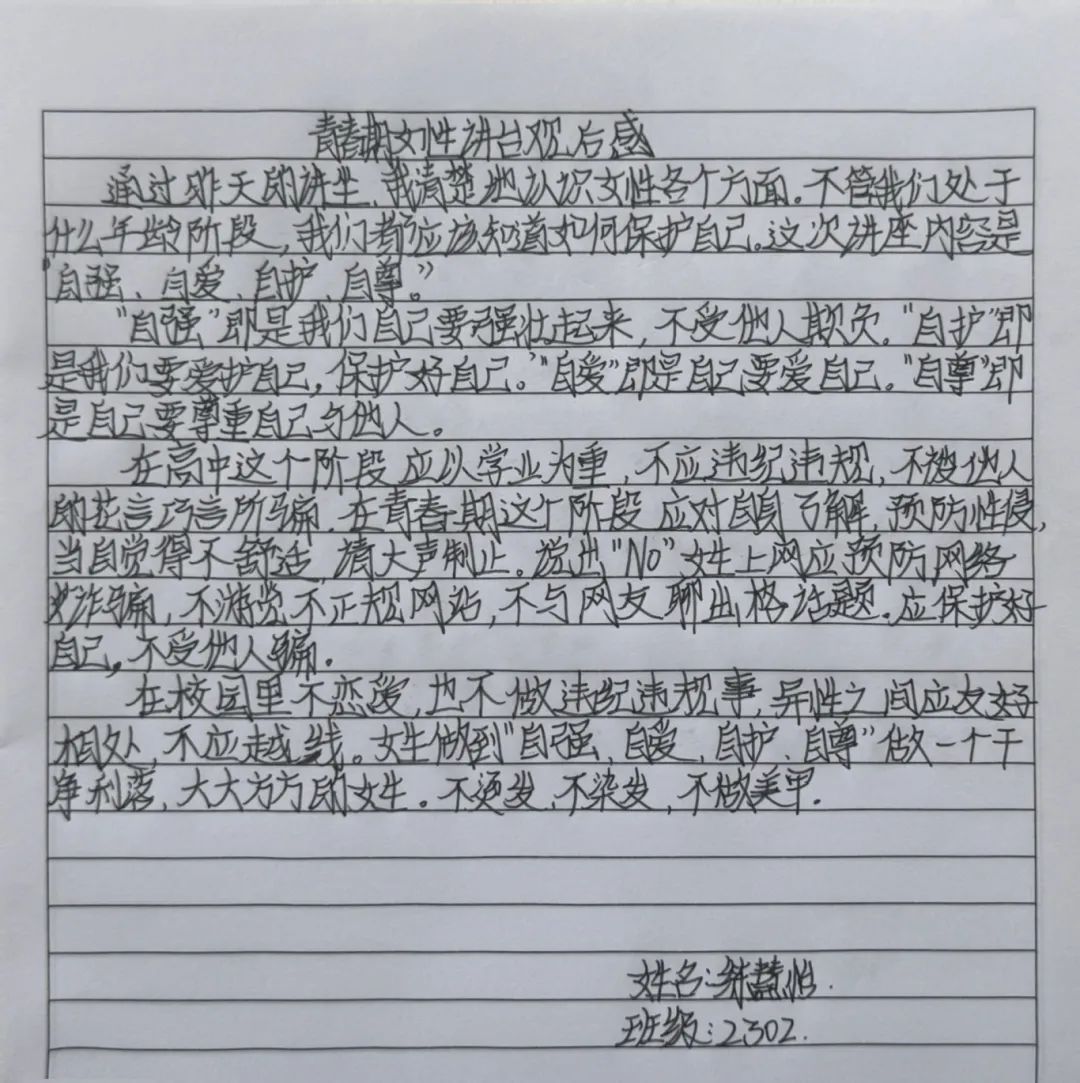 青春期女性讲台观后感
通过昨天的讲坐,我清楚地认识女性各个方面.不管我们处于
什么年龄阶段,我们都应该知道如何保护自己。这次讲座内容是
"自强、自爱、自护、自尊。"
"自强"即是我们自己要强壮起来,不受他人欺负."自护"即
是我们要爱护自己,保护好自己。"自爱"即是自己要爱自己。"自尊"即
是自己要尊重自己与他人。
在高中这个阶段应以学业为重,不应违纪违规,不被他人
的花言巧言所骗.在青春期这个阶段应对自身了解,预防性侵,
当自觉得不舒适 请大声制止.说出"No"女生上网应预防网络
诈骗,不游览不正规网站,不与网友聊出格话题.应保护好
自己,不受他人骗.
在校园里不恋爱,也不做违纪违规事,异性之间应友好
相处,不应越线。女生做到"自强、自爱、自护、自尊"做一个干
净利落,大大方方的女生。不烫发,不染发,不做美甲.
姓名:慧怡.
班级:2302.